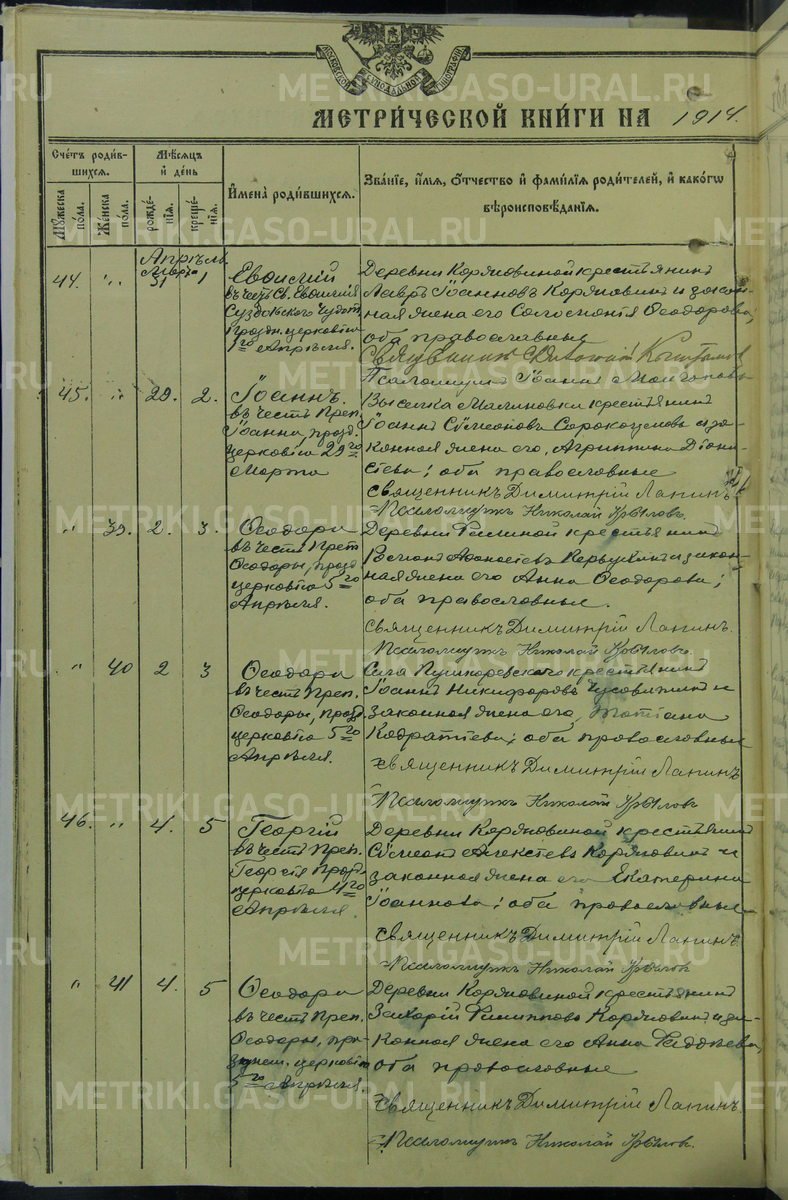 МОСКОВСКОЙ СѴНОДАЛЬНОЙ ТИПОГРАФІИ
МЕТРИ́ЧЕСКОЙ КНИ́ГИ НА 1914.
Сче́тъ роди́в-
шихся.
Мѣ́сяцъ
и҆ де́нь
И҆мена̀ роди́вшихся.
Зва́нїе, и҆́мѧ, ѻ҆́тчество и҆ фами́лїѧ роди́телей, и҆ како́гѡ
вѣроисповѣ́данїѧ.
Мꙋ́жеска
по́ла.
Же́нска
по́ла.
рожде́-
нїѧ.
креще́-
нїѧ.
Апрѣль
Марта
44. " 31 1
Евѳимій
въ честь Св. Евѳимія
Суздальскаго Чудотв.
праздн. церковію
1го Апрѣля.
Деревни Коряковиной крестьянинъ
Лавръ Іоанновъ Коряковинъ и закон-
ная жена его Ѳеодорова,
оба православные
Священникъ
Псаломщикъ Іоаннъ
45. " 29. 2.
Іоаннъ.
въ честь Преп.
Іоанна, празд.
церковію 29го
Марта
Выселка Малиновки крестьянинъ
Іоаннъ Сѵмеоновъ Сорокоумовъ и за-
конная жена его, Агриппина Діони-
сіева; оба православные
Священникъ Димитрій Лапинъ
Псаломщикъ Николай
" 39. 2. 3.
Ѳеодора
въ честь Преп.
Ѳеодоры, празд.
церковію 5го
Апрѣля.
Деревни крестьянинъ
Аѳанасіевъ и закон-
ная жена его Анна Ѳеодорова;
оба православные.
Священникъ Димитрій Лапинъ.
Псаломщикъ Николай
" 40 2 3
Ѳеодора
въ честь Преп.
Ѳеодоры, празд.
церковію 5го
Апрѣля.
Села крестьянинъ
Іоаннъ Никифоровъ и
законная жена его, Татіана
Кодратіева; оба православные
Священникъ Димитрій Лапинъ
Псаломщикъ Николай
46. " 4. 5
Георгій
въ честь Преп.
Георгія празд.
церковію 4го
Апрѣля
Деревни Коряковиной крестьянинъ
Сѵмеонъ Алексіевъ Коряковинъ и
законная жена его Екатерина
Іоаннова; оба православные
Священникъ Димитрій Лапинъ
Псаломщикъ Николай
" 41 4. 5
Ѳеодора
въ честь Преп.
Ѳеодоры, пра-
здн. церковію
5го Апрѣля.
Деревни Коряковиной крестьянинъ
Захарій Филипповъ Коряковинъ и за-
конная жена его Анна Ѳаддѣева,
оба православные
Священникъ Димитрій Лапинъ.
Псаломщикъ Николай
METRIKI.GASO-URAL.RU